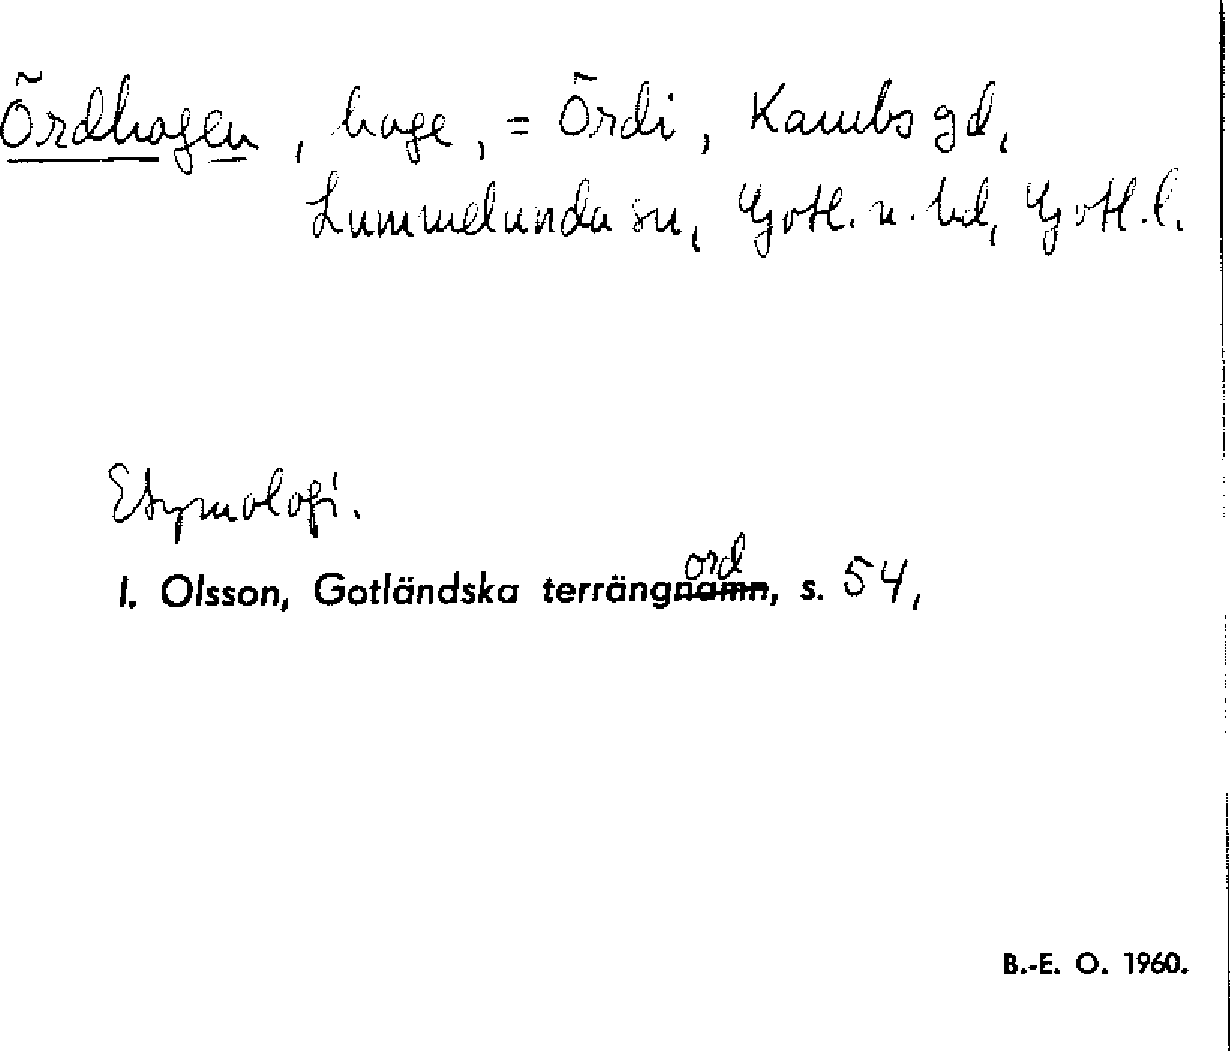 Ördhagen, hage, = Ördi, Kambs gd,
Lummelunda sn, Gotl. n. hd, Gotl. l.
Etymologi.
ord
I. Olsson, Gotländska terrängnamn, s. 54,
B.-E. O. 1960.